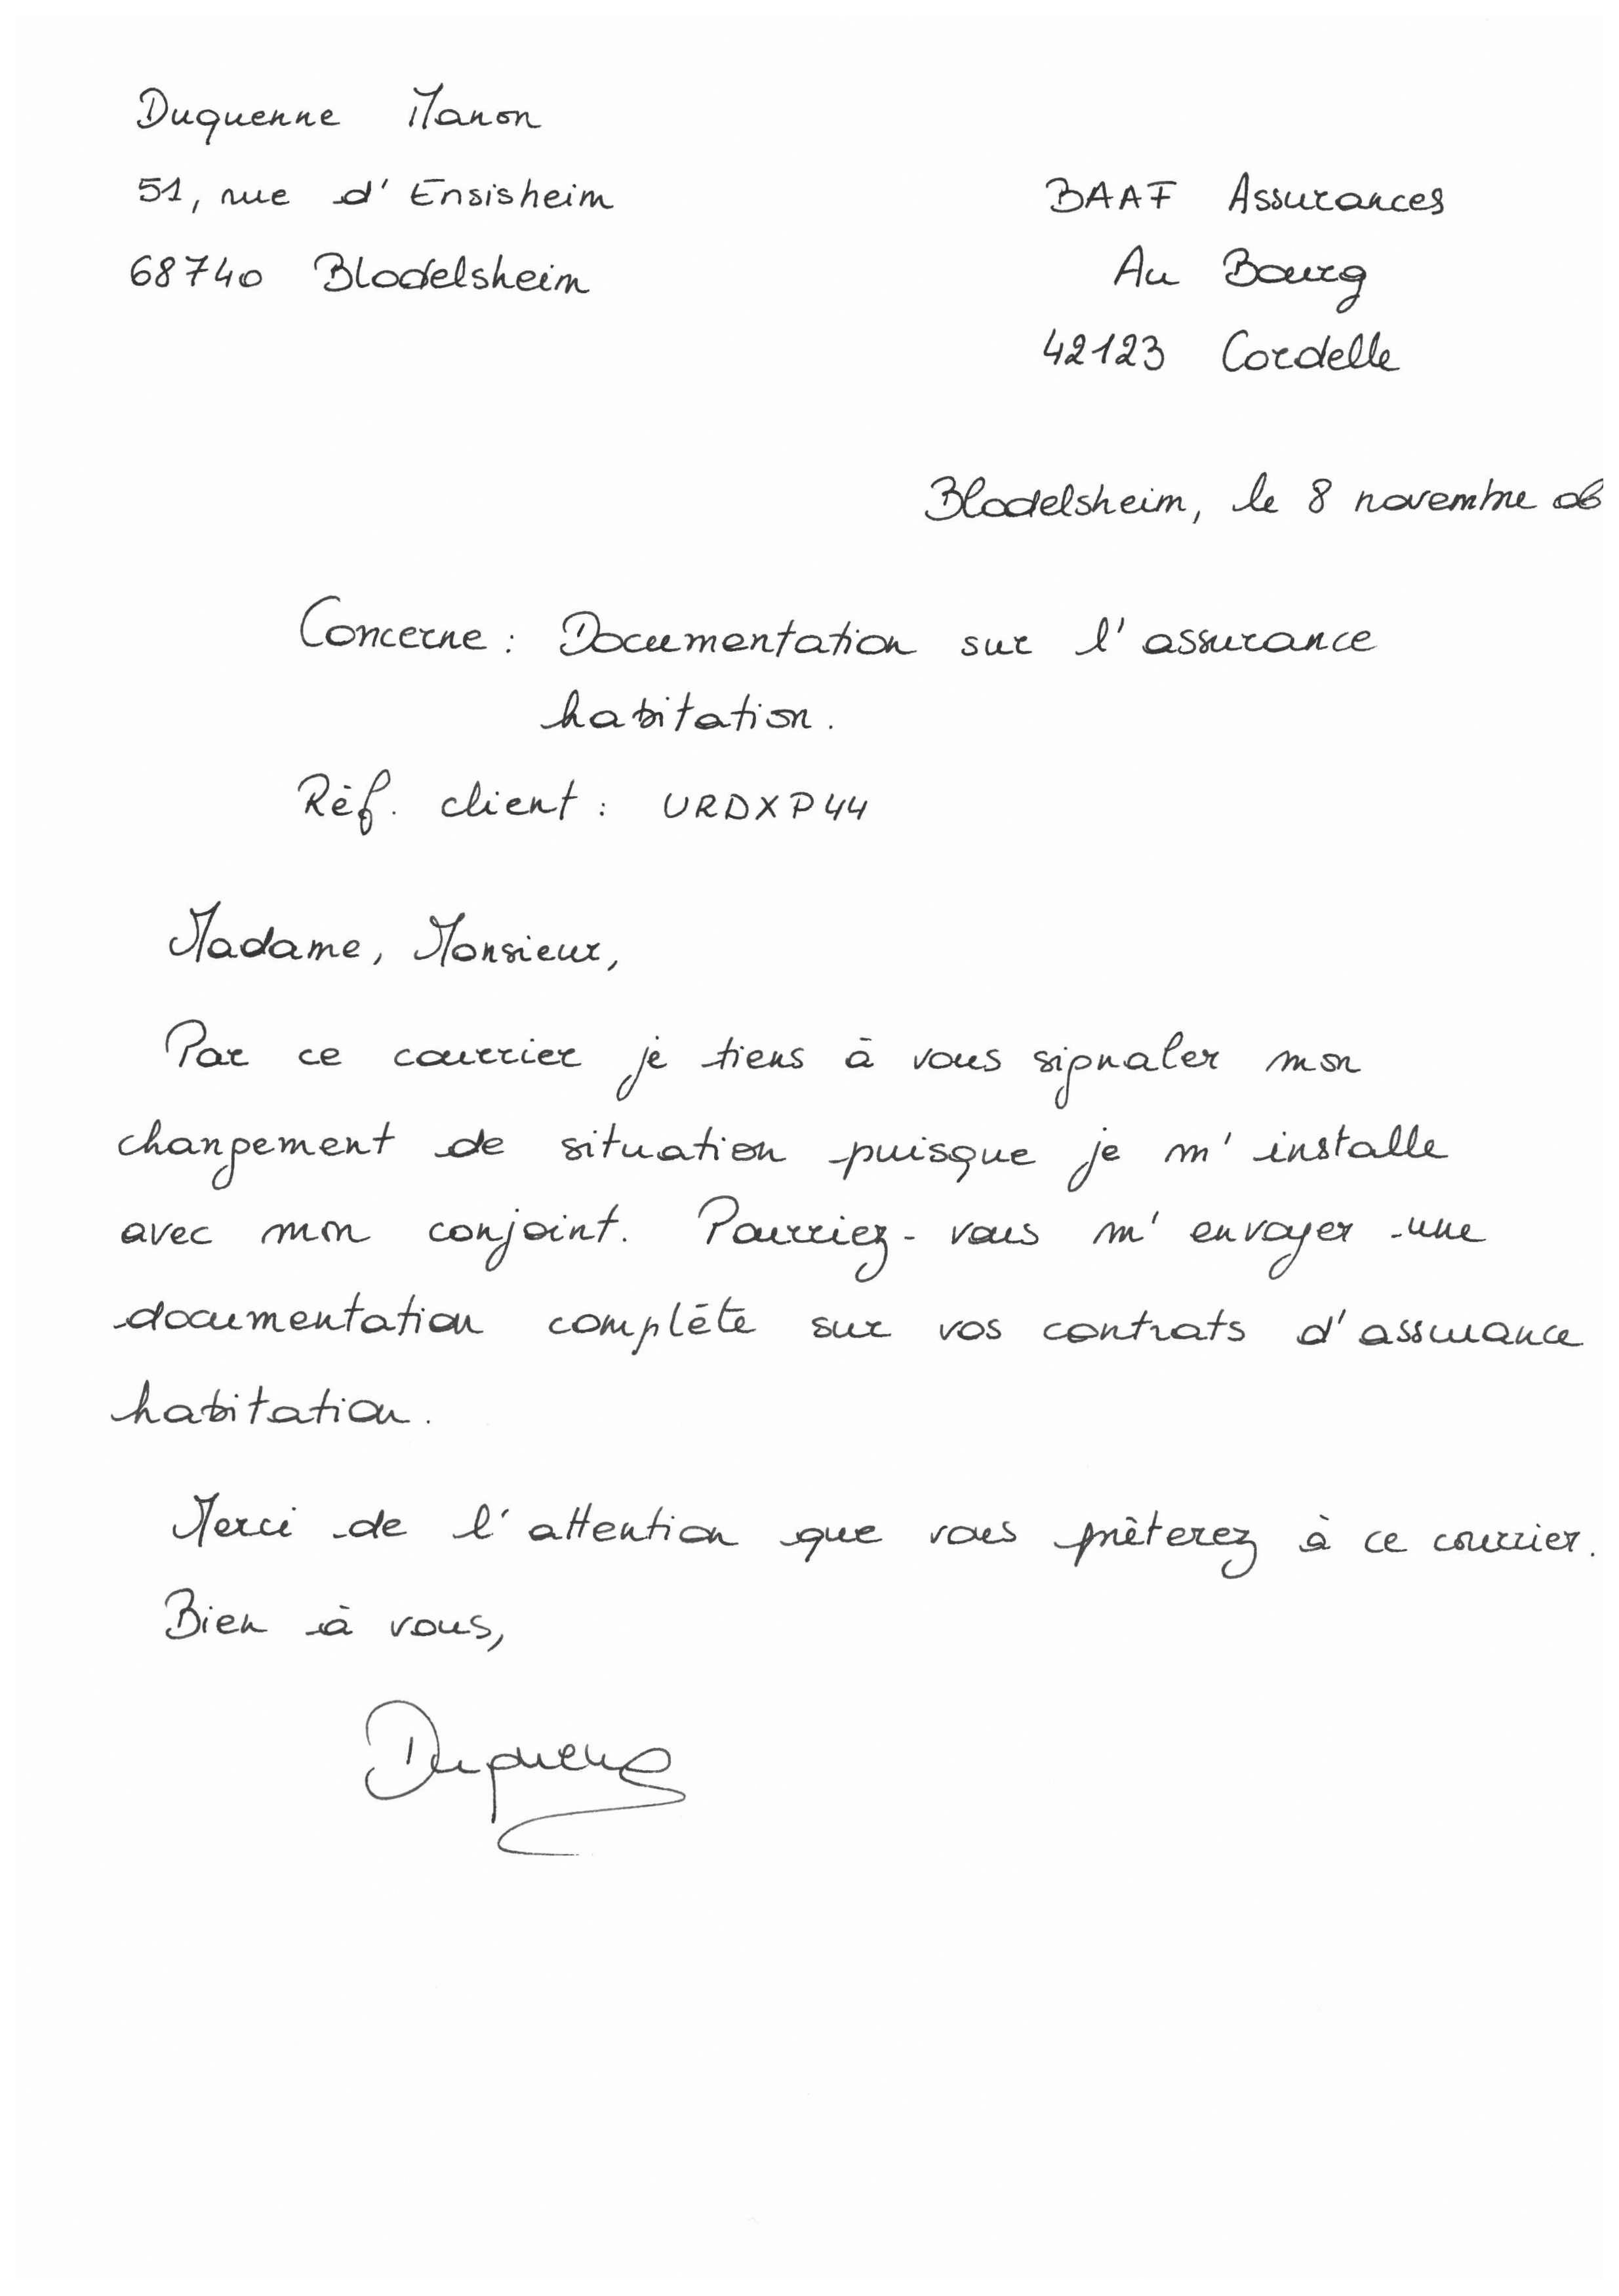 Duquenne Manon
51, rue d'Ensisheim
68740 Blodelsheim
BAAF Assurances
Au Bourg
42123 Cordelle
Blodelsheim, le 8 novembre 06
Concerne : Documentation sur l'assurance
habitation.
Réf. client : URDXP44
Madame, Monsieur,
Par ce courrier je tiens à vous signaler mon
changement de situation puisque je m'installe
avec mon conjoint. Pourriez-vous m'envoyer une
documentation complète sur vos contrats d'assurance
habitation.
Merci de l'attention que vous prêterez à ce courrier.
Bien à vous,
Duquenne